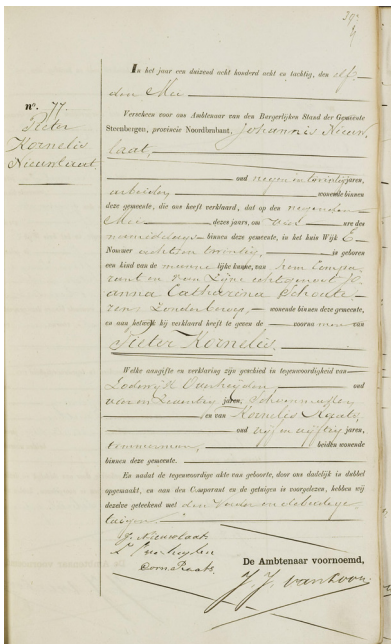 In het jaar een duizend acht honderd acht en tachtig, den elf-
den Mei
n°. 77.
Pieter
Kornelis
Nieuwlaat
Verscheen voor ons Ambtenaar van den Burgerlijken Stand der Gemeente
Steenbergen, provincie Noordbrabant, Johannis Nieuw
laat,
oud negen en twintig jaren,
arbeider wonende binnen
deze gemeente, die ons heeft verklaard, dat op den negenden
Mei dezes jaars, om vier ure des
namiddags binnen deze gemeente, in het huis Wijk E
Nommer achttien twintig, is geboren
een kind van de mannelijke kunne, van hem Compa
rant en van zijne echtgenoot Jo
anna Catharina Schoute
rens Zonder beroep, wonende binnen deze gemeente,
en aan hetwelk hij verklaard heeft te geven de voornamen van
Pieter Kornelis.
Welke aangifte en verklaring zijn geschied in tegenwoordigheid van
Lodowijk Overheijden, oud
jaren,
en van Kornelis Raats,
oud vijf en vijftig jaren,
timmerman, beiden wonende
binnen deze gemeente.
En nadat de tegenwoordige akte van geboorte, door ons dadelijk in dubbel
opgemaakt, en aan den Comparant en de getuigen is voorgelezen, hebben wij
dezelve geteekend met den Vader en de beide ge
tuigen
J. Nieuwlaat
L. Overheijden
Corn. Raats
De Ambtenaar voornoemd,
J. J. van Loon